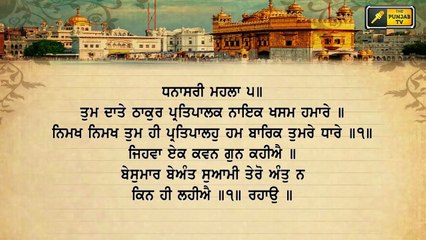 THE
PUNJAB
TV
ਧਨਾਸਰੀ ਮਹਲਾ ੫॥
ਤੁਮ ਦਾਤੇ ਠਾਕੁਰ ਪ੍ਰਤਿਪਾਲਕ ਨਾਇਕ ਖਸਮ ਹਮਾਰੇ ॥
ਨਿਮਖ ਨਿਮਖ ਤੁਮ ਹੀ ਪ੍ਰਤਿਪਾਲਹੁ ਹਮ ਬਾਰਿਕ ਤੁਮਰੇ ਧਾਰੇ ॥੧॥
ਜਿਹਵਾ ਏਕ ਕਵਨ ਗੁਨ ਕਹੀਐ ॥
ਬੇਸੁਮਾਰ ਬੇਅੰਤ ਸੁਆਮੀ ਤੇਰੋ ਅੰਤੁ ਨ
ਕਿਨ ਹੀ ਲਹੀਐ ॥੧॥ ਰਹਾਉ ॥